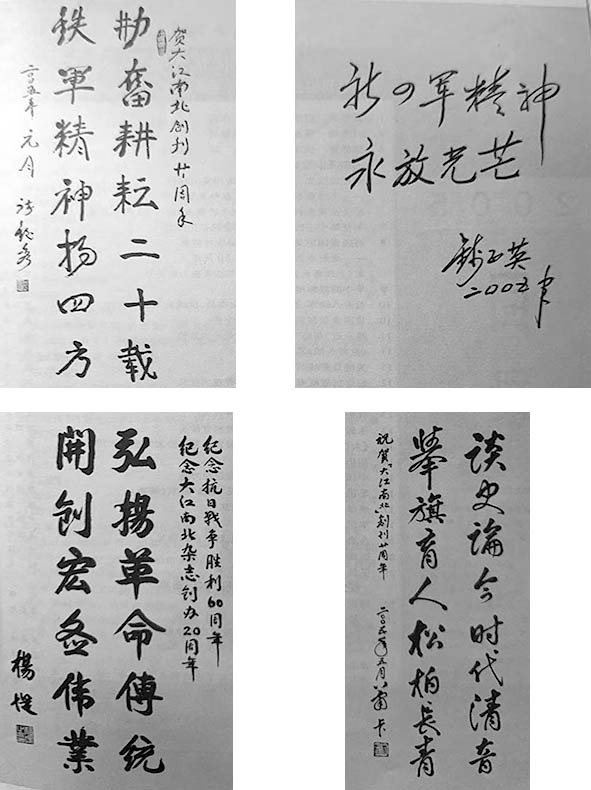 贺大江南北创刊廿周年
勤奮耕耘二十载
铁軍精神扬四方
二〇〇五年元月
新四军精神
永放光芒
钱正英
二00五年
纪念抗日戰争胜利60周年
纪念大江南北杂志创办20周年
弘揚革命傳统
開创宏图伟業
楊堤
谈史論今时代清音
举旗育人松柏長青
祝贺《大江南北》创刊廿周年
二〇〇五年五月